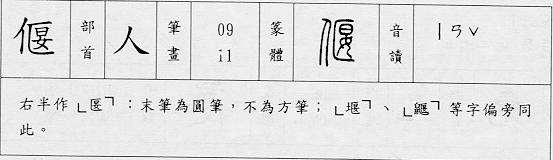 偃 部首 人 筆畫 09 i1 篆體 偃 音讀 ㄧㄢˇ
右半作「匽」:末筆為圓筆,不為方筆;「堰」、「鼴」等字偏旁同
此。